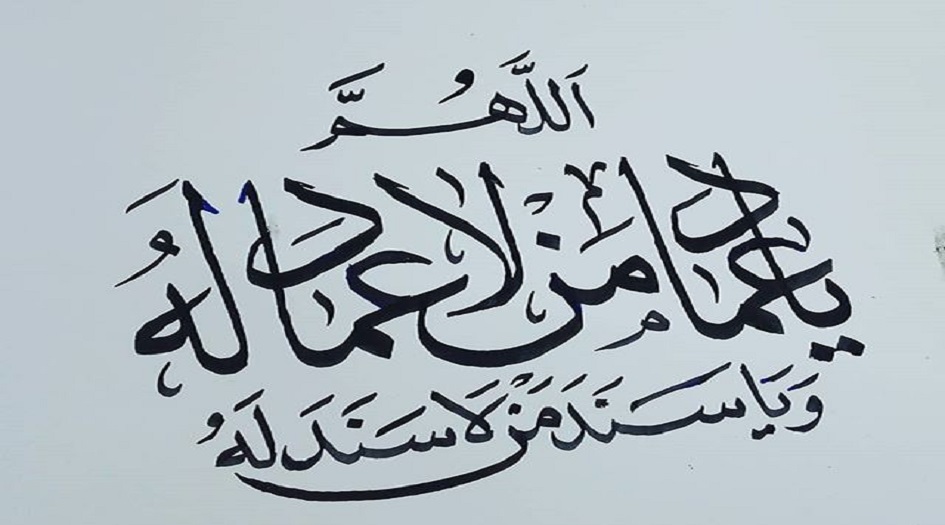 اَللّٰهُمَّ
يا عماد من لا عماد لهُ
وَيَا سَنَدَ مَنْ لَا سَنَدَ لَهُ